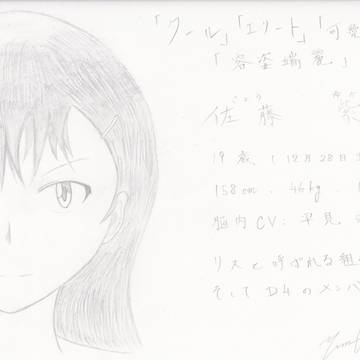 「クール」「エリート」「可愛
「容姿端麗」
さとう
佐藤 紫
19歳、12月28日
158cm、46kg、
脳内CV：早見
リスと呼ばれる組
そしてD4のメンバ